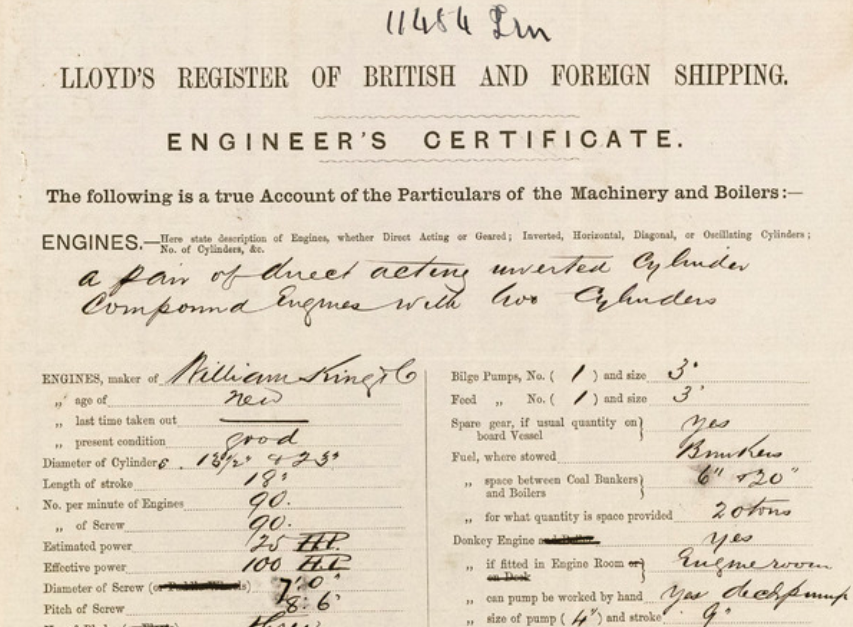 11484 Lrn
LLOYD'S REGISTER OF BRITISH AND FOREIGN SHIPPING.
ENGINEER'S CERTIFICATE.
The following is a true Account of the Particulars of the Machinery and Boilers:—
ENGINES.—Here state description of Engines, whether Direct Acting or Geared; Inverted, Horizontal, Diagonal, or Oscillating Cylinders;
No. of Cylinders, &c.
a pair of direct acting inverted Cylinder
Compound Engines with two Cylinders
ENGINES, maker of William King & Co
„ age of new
„ last time taken out
„ present condition good
Diameter of Cylinders . & 23"
Length of stroke 18"
No. per minute of Engines 90.
„ of Screw 90.
Estimated power 25 H.P.
Effective power 100 H.P.
Diameter of Screw (or Paddle Wheels) 7' 0"
Pitch of Screw 8' 6"
three
Bilge Pumps, No. ( 1 ) and size 3"
Feed „ No. ( 1 ) and size 3"
Spare gear, if usual quantity on board Vessel } yes
Fuel, where stowed Bunkers
„ space between Coal Bunkers and Boilers } 6" & 20"
„ for what quantity is space provided 20 tons
Donkey Engine yes
„ if fitted in Engine Room or on Deck } Engine room
„ can pump be worked by hand Yes deck pump
„ size of pump ( 4" ) and stroke 9"